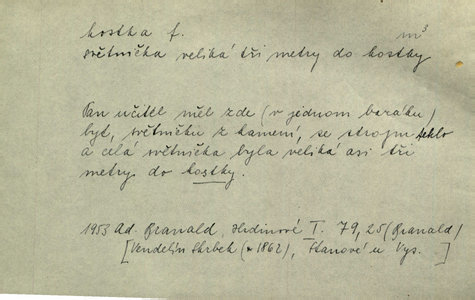 kostka f. m³
světnička veliká tři metry do kostky
Pan učitel měl zde (v jednom baráku)
byt, světničku z kamení, se stropu teklo
a celá světnička byla veliká asi tři
metry do kostky.
1953 Ad. Branald, Hrdinové I. 79, 25 (Branald)
[Vendelín Skrbek (* 1862), Stanové u Vys. ]